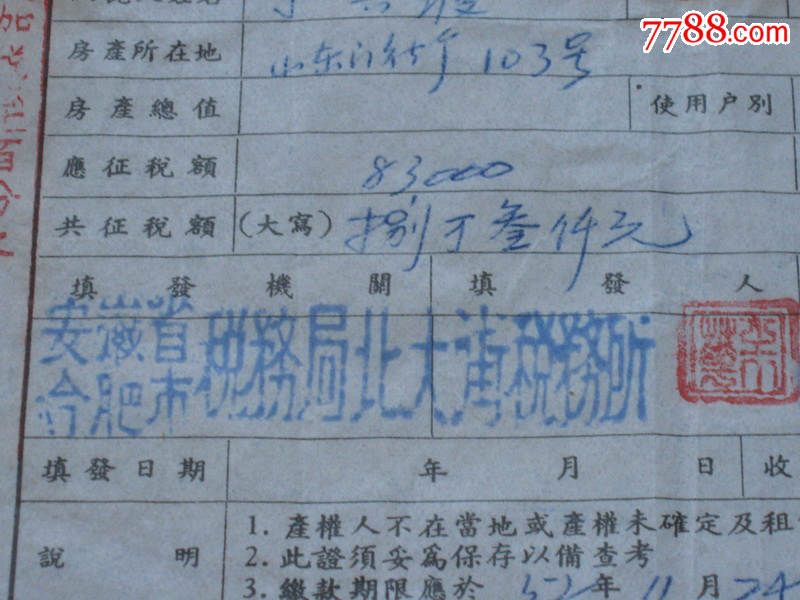 7788.com
中国收藏热线
房產所在地
103号
房產總值
使用户別
應征稅額
83,000
共征稅額
(大寫) 捌万叁仟元
填發機關
填發人
安徽省合肥市税務局北大街税務所
填發日期
年 月 日
收
說明
1. 產權人不在當地或產權未確定及租
2. 此證須妥為保存以備查考
3. 繳款期限應於 52年11月24